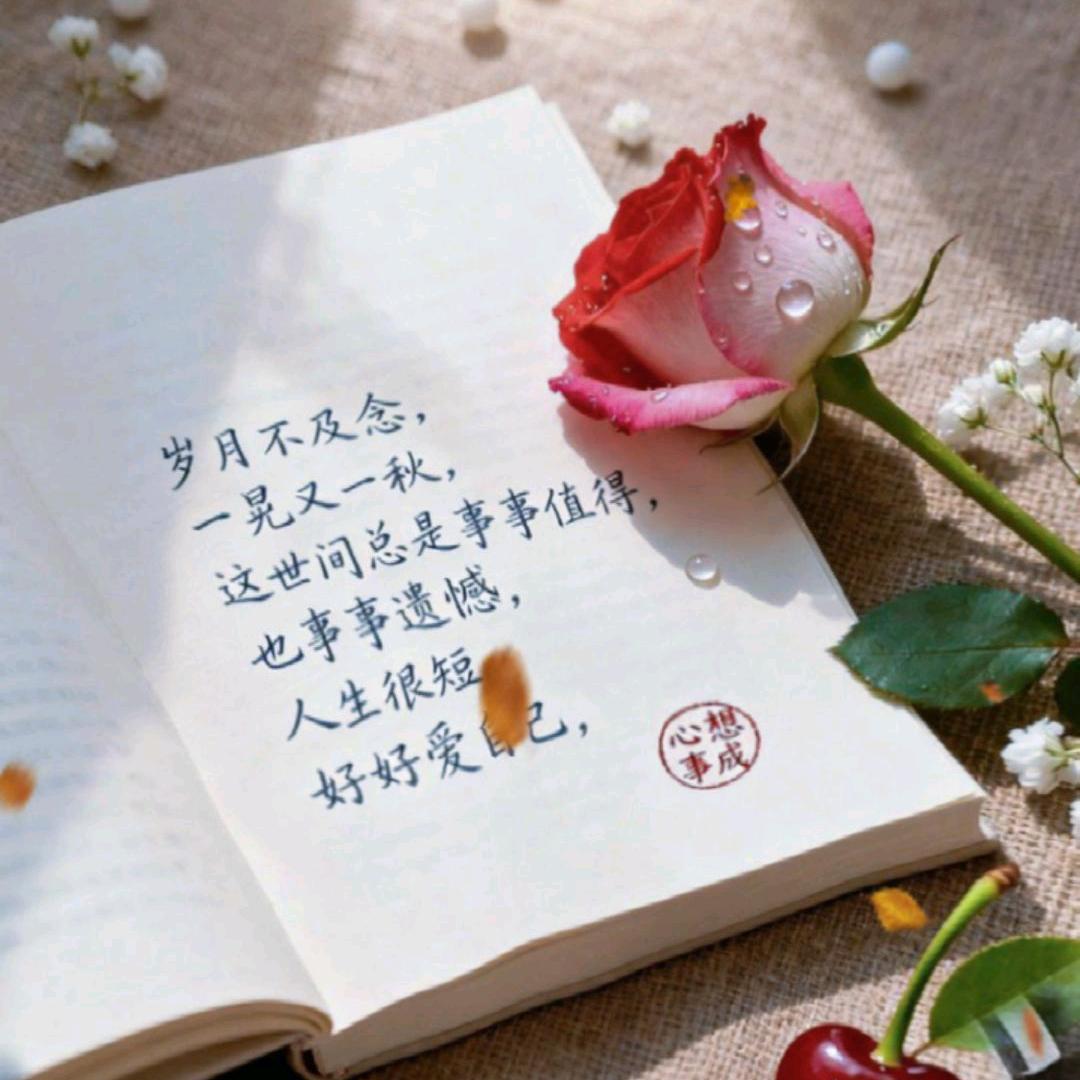 岁月不及念，
一晃又一秋，
这世间总是事事值得，
也事事遗憾，
人生很短
好好爱自己，
心想
事成